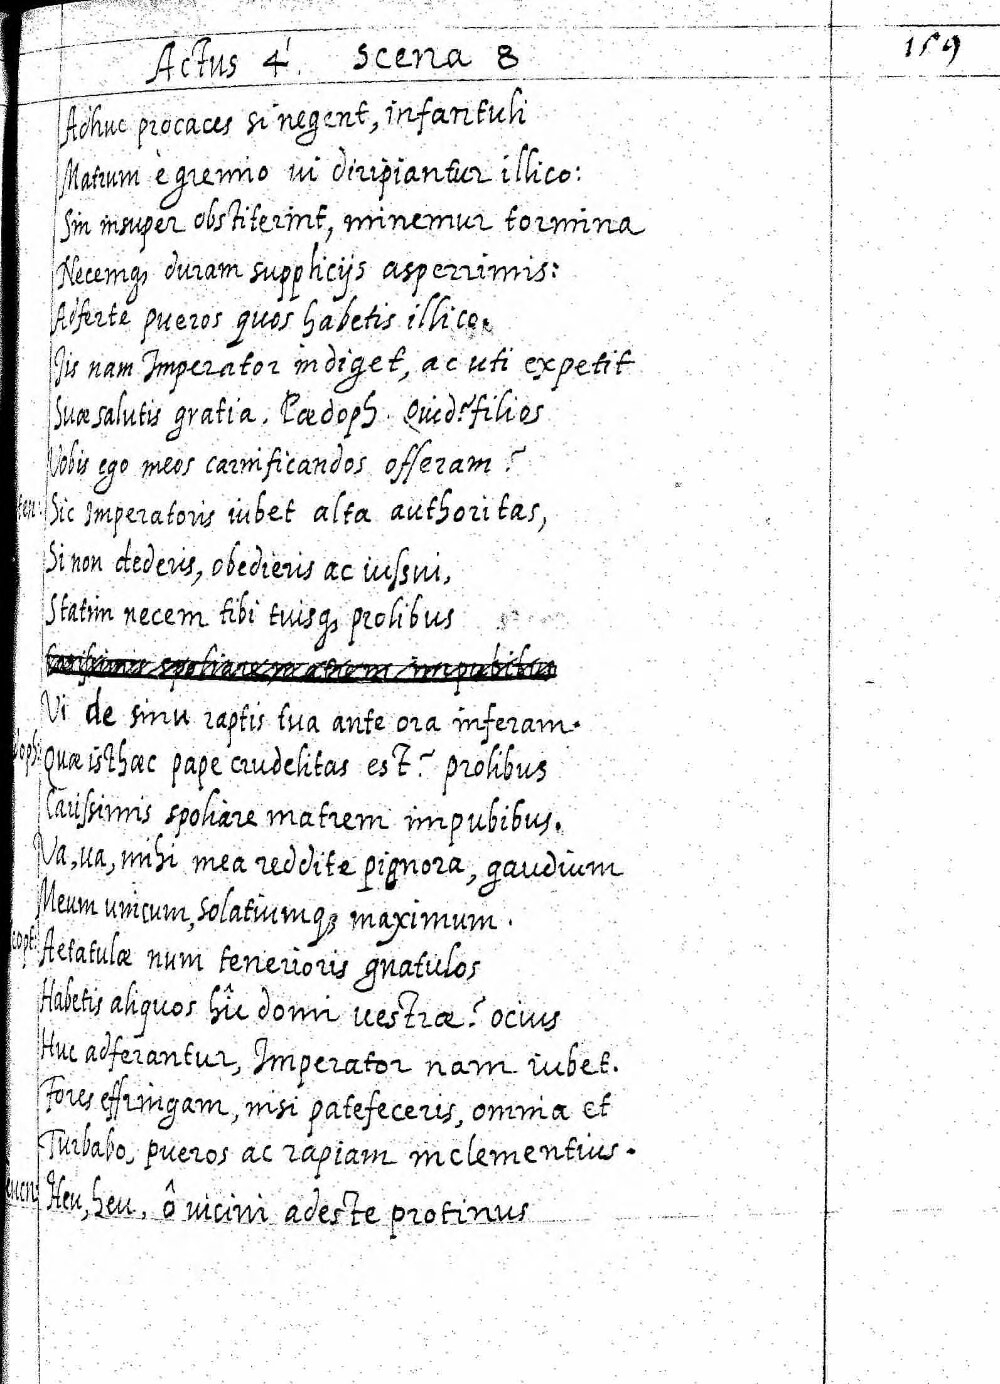 Actus 4. Scena 8
159
Adhuc procaces si negent, infantuli
Matrum è gremio ui diripiantur illico:
Sin insuper obstiterint, minemur tormina
Necemq, duram supplicijs asperrimis:
Adferte pueros quos habetis illico.
Jis nam Imperator indiget, ac uti expetit
Suæ salutis gratia. Pædoph. Quid? filios
Vobis ego meos carnificandos offeram?
Sic Imperatoris iubet alta authoritas,
Si non dederis, obedieris ac iussui,
Statim necem tibi tuisq, prolibus
Carissimis spoliare matrem impubibus
Vi de sinu raptis tua ante ora inferam.
doph: Quæ isthæc pape crudelitas est? prolibus
Carissimis spoliare matrem impubibus.
Va, ua, mihi mea reddite pignora, gaudium
Meum unicum, solatiumq, maximum.
Aetatulæ num tenerioris gnatulos
Habetis aliquos hîc domi uestræ? ocius
Huc adferantur, Imperator nam iubet.
Fores effringam, nisi patefeceris, omnia et
Turbabo, pueros ac rapiam inclementius.
Heu, heu, ô uicini adeste protinus